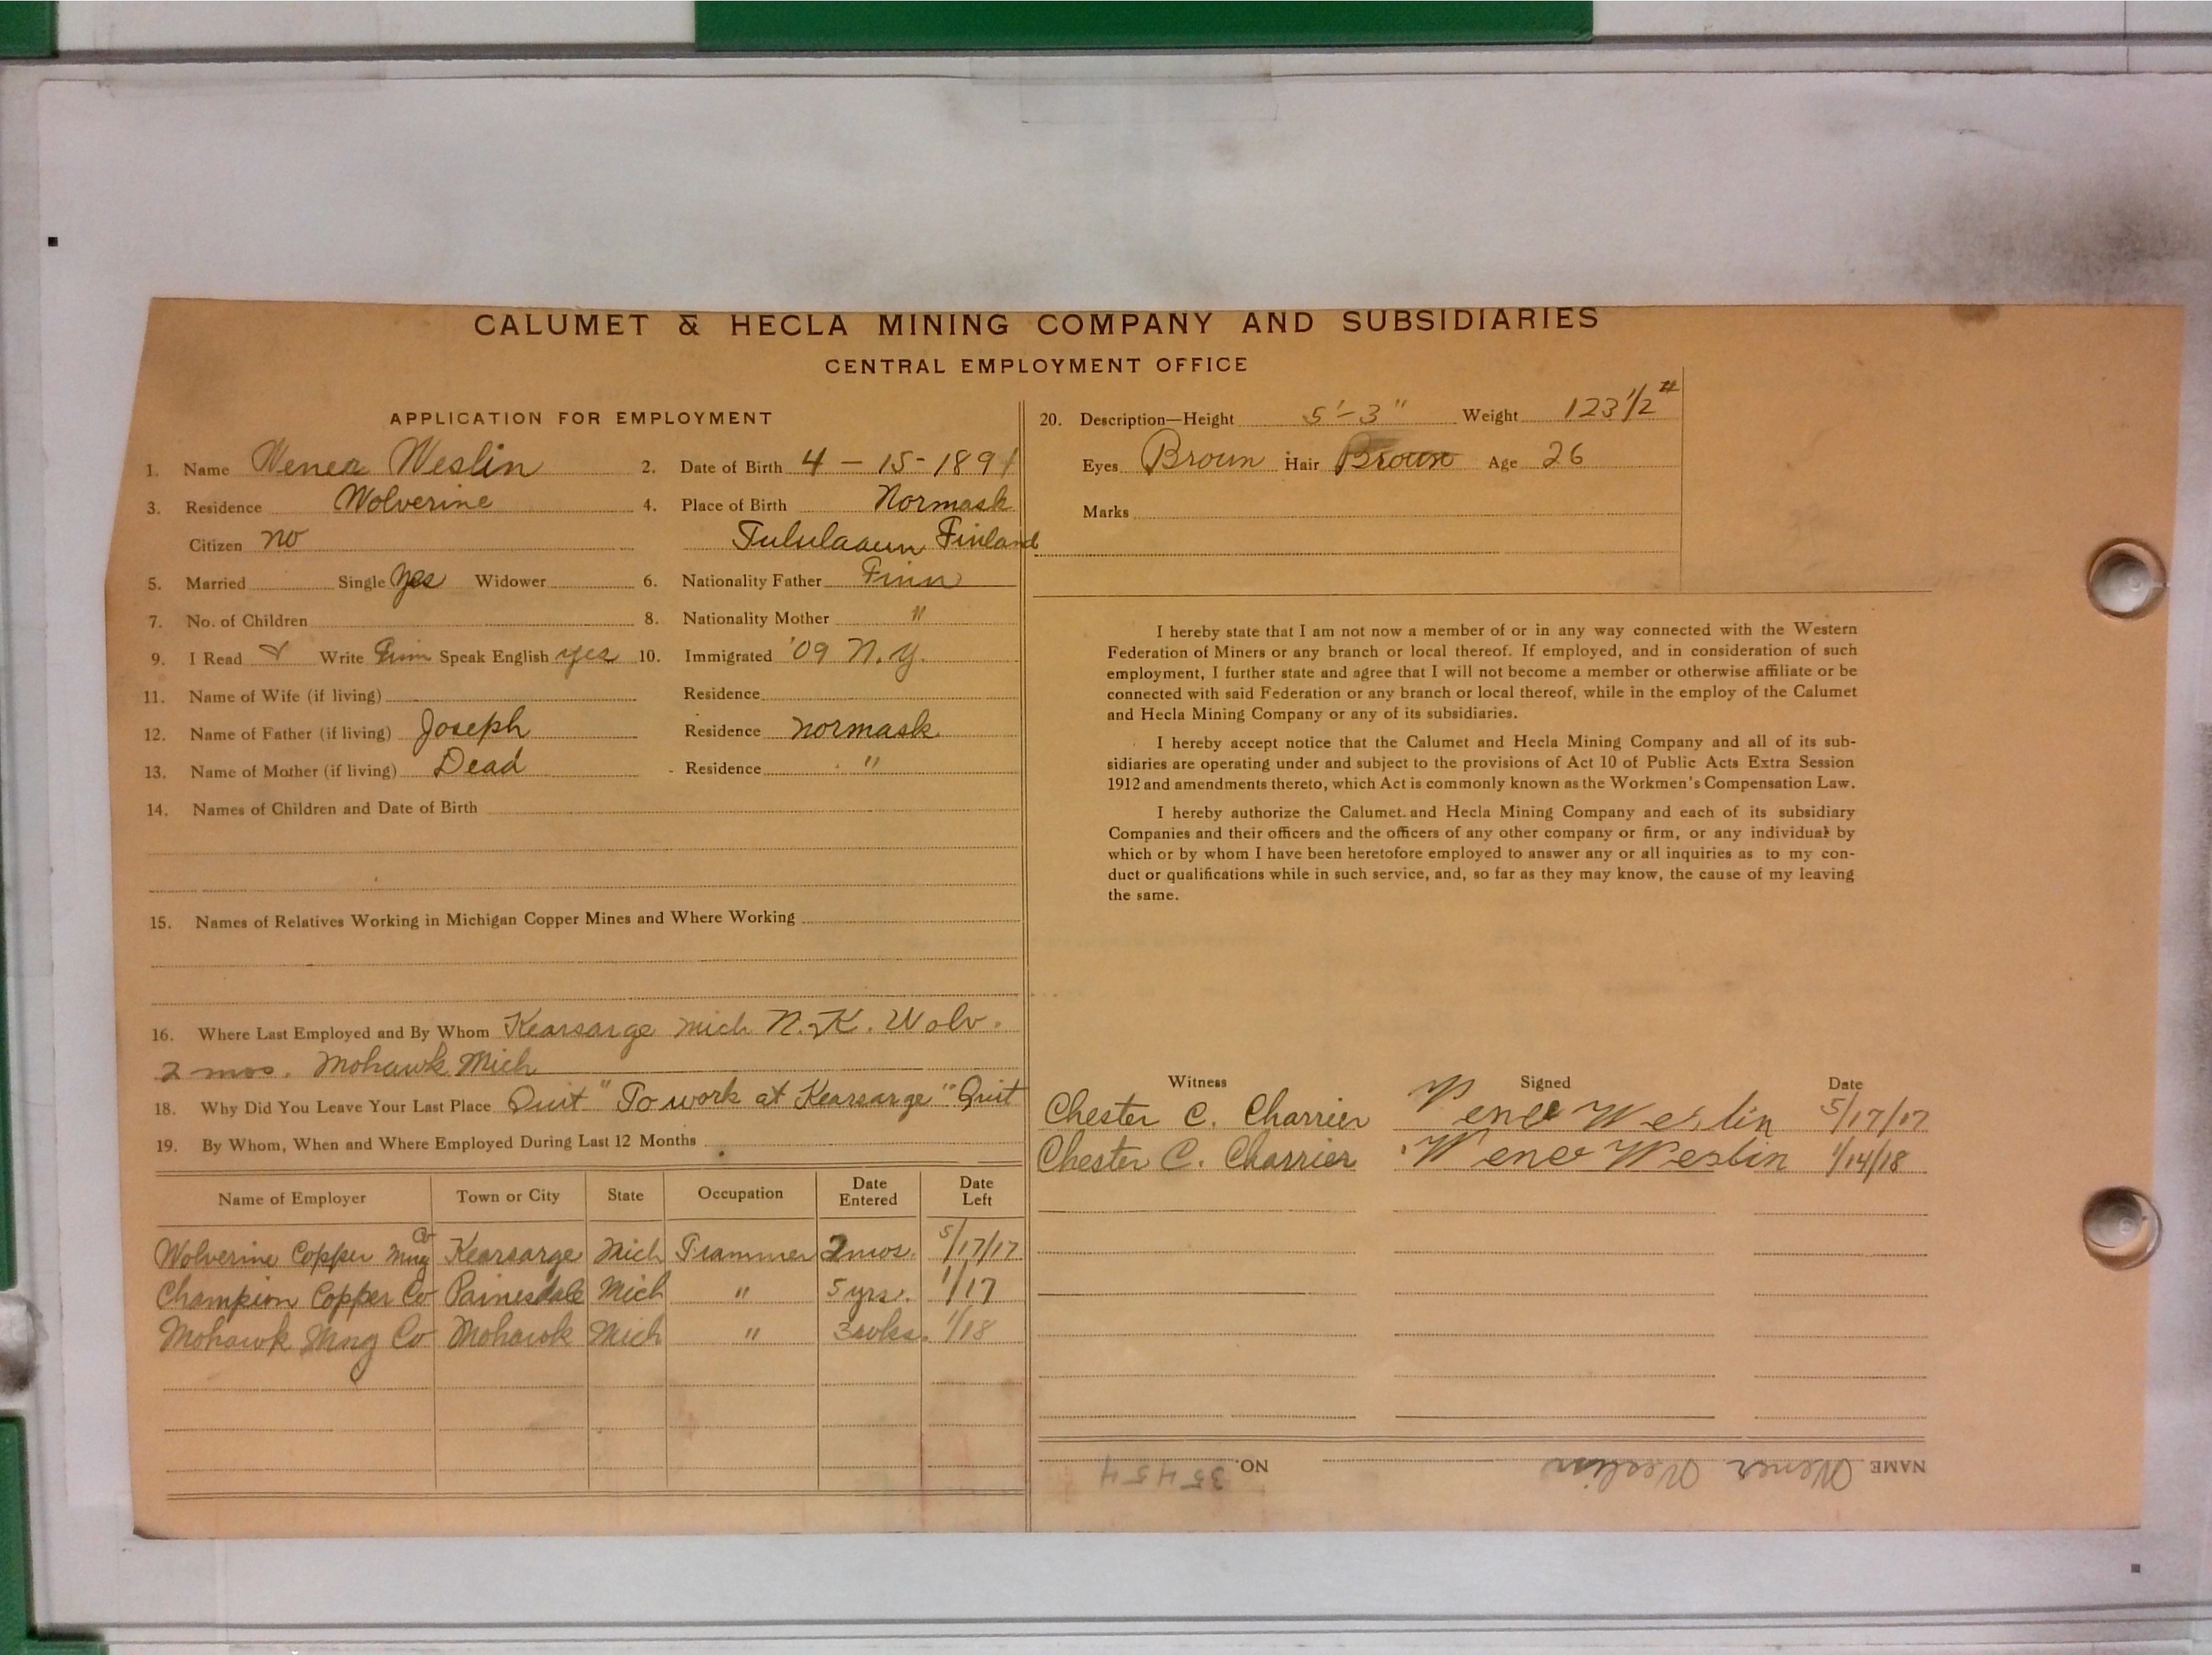 CALUMET & HECLA MINING COMPANY AND SUBSIDIARIES
CENTRAL EMPLOYMENT OFFICE
APPLICATION FOR EMPLOYMENT
1. Name Wener Weslin 2. Date of Birth 4 - 15 - 1891
3. Residence Wolverine 4. Place of Birth Normask
Citizen no Finland
5. Married Single Yes Widower 6. Nationality Father Finn
7. No. of Children 8. Nationality Mother "
9. I Read & Write Finn Speak English yes 10. Immigrated '09 N.Y.
11. Name of Wife (if living) Residence
12. Name of Father (if living) Joseph Residence normask
13. Name of Mother (if living) Dead Residence "
14. Names of Children and Date of Birth
15. Names of Relatives Working in Michigan Copper Mines and Where Working
16. Where Last Employed and By Whom Kearsarge Mich N.K. Wolv.
2 mos. Mohawk Mich
18. Why Did You Leave Your Last Place Quit "To work at Kearsarge" Quit
19. By Whom, When and Where Employed During Last 12 Months
Name of Employer Town or City State Occupation Date Entered Date Left
Wolverine Copper Mng Co Kearsarge Mich Trammer 2 mos. 5/17/17
Champion Copper Co Painesdale Mich " 5 yrs. 1/17
Mohawk Mng Co Mohawk Mich " 3 wks. 1/18
20. Description—Height 5'-3" Weight 123 1/2 #
Eyes Brown Hair Brown Age 26
Marks
I hereby state that I am not now a member of or in any way connected with the Western
Federation of Miners or any branch or local thereof. If employed, and in consideration of such
employment, I further state and agree that I will not become a member or otherwise affiliate or be
connected with said Federation or any branch or local thereof, while in the employ of the Calumet
and Hecla Mining Company or any of its subsidiaries.
I hereby accept notice that the Calumet and Hecla Mining Company and all of its sub-
sidiaries are operating under and subject to the provisions of Act 10 of Public Acts Extra Session
1912 and amendments thereto, which Act is commonly known as the Workmen's Compensation Law.
I hereby authorize the Calumet and Hecla Mining Company and each of its subsidiary
Companies and their officers and the officers of any other company or firm, or any individual by
which or by whom I have been heretofore employed to answer any or all inquiries as to my con-
duct or qualifications while in such service, and, so far as they may know, the cause of my leaving
the same.
Witness Signed Date
Chester C. Charrier Wener Weslin 5/17/17
Chester C. Charrier Wener Weslin 1/14/18
NAME Wener Weslin NO. 35454